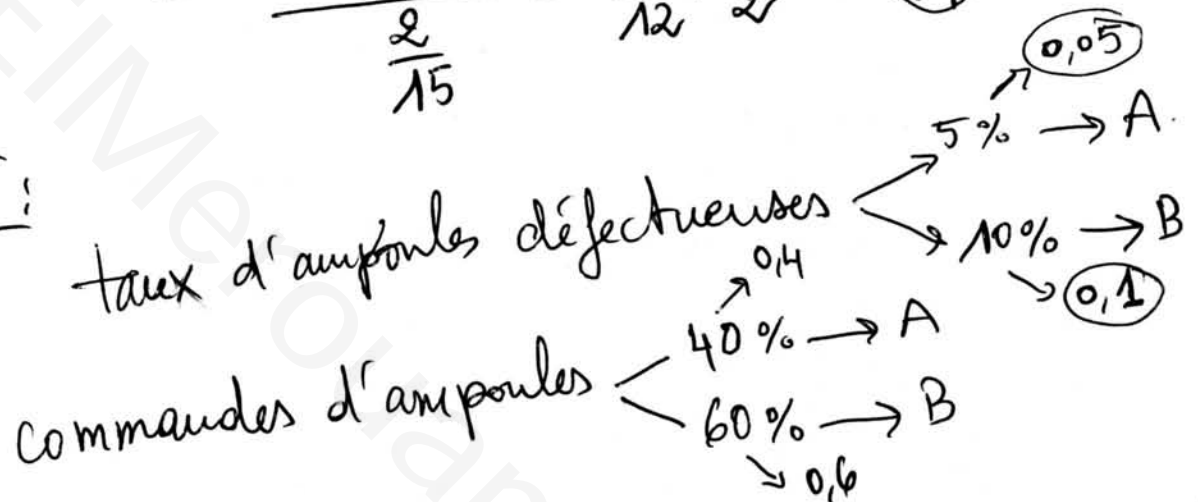 2/15
12 2
0,05
5% → A.
taux d'ampoules défectueuses
10% → B
0,1
0,4
40% → A
commandes d'ampoules
60% → B
0,6